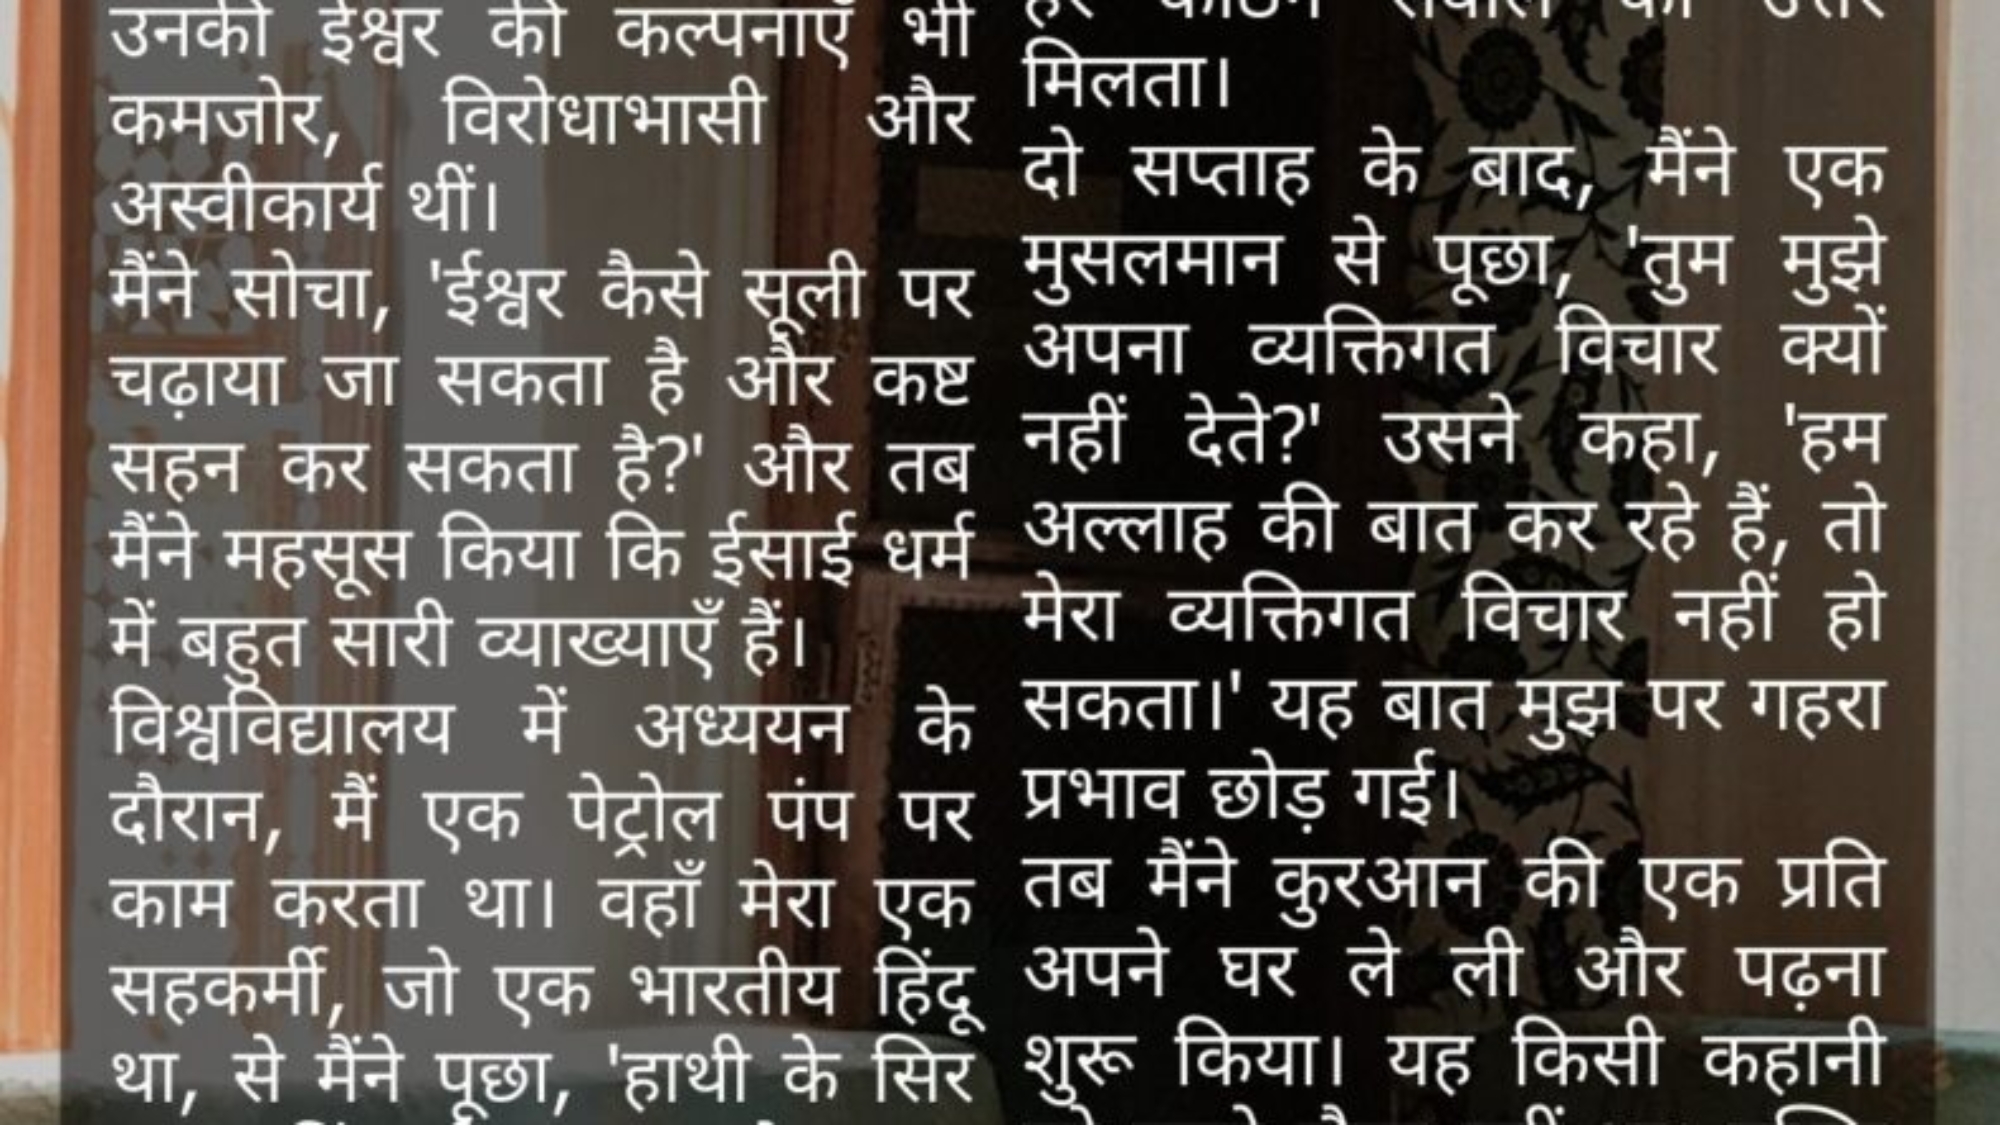 उनकी ईश्वर की कल्पनाएँ भी
कमजोर, विरोधाभासी और
अस्वीकार्य थीं।
मैंने सोचा, 'ईश्वर कैसे सूली पर
चढ़ाया जा सकता है और कष्ट
सहन कर सकता है?' और तब
मैंने महसूस किया कि ईसाई धर्म
में बहुत सारी व्याख्याएँ हैं।
विश्वविद्यालय में अध्ययन के
दौरान, मैं एक पेट्रोल पंप पर
काम करता था। वहाँ मेरा एक
सहकर्मी, जो एक भारतीय हिंदू
था, से मैंने पूछा, 'हाथी के सिर
हर कठिन सवाल का उत्तर
मिलता।
दो सप्ताह के बाद, मैंने एक
मुसलमान से पूछा, 'तुम मुझे
अपना व्यक्तिगत विचार क्यों
नहीं देते?' उसने कहा, 'हम
अल्लाह की बात कर रहे हैं, तो
मेरा व्यक्तिगत विचार नहीं हो
सकता।' यह बात मुझ पर गहरा
प्रभाव छोड़ गई।
तब मैंने कुरआन की एक प्रति
अपने घर ले ली और पढ़ना
शुरू किया। यह किसी कहानी